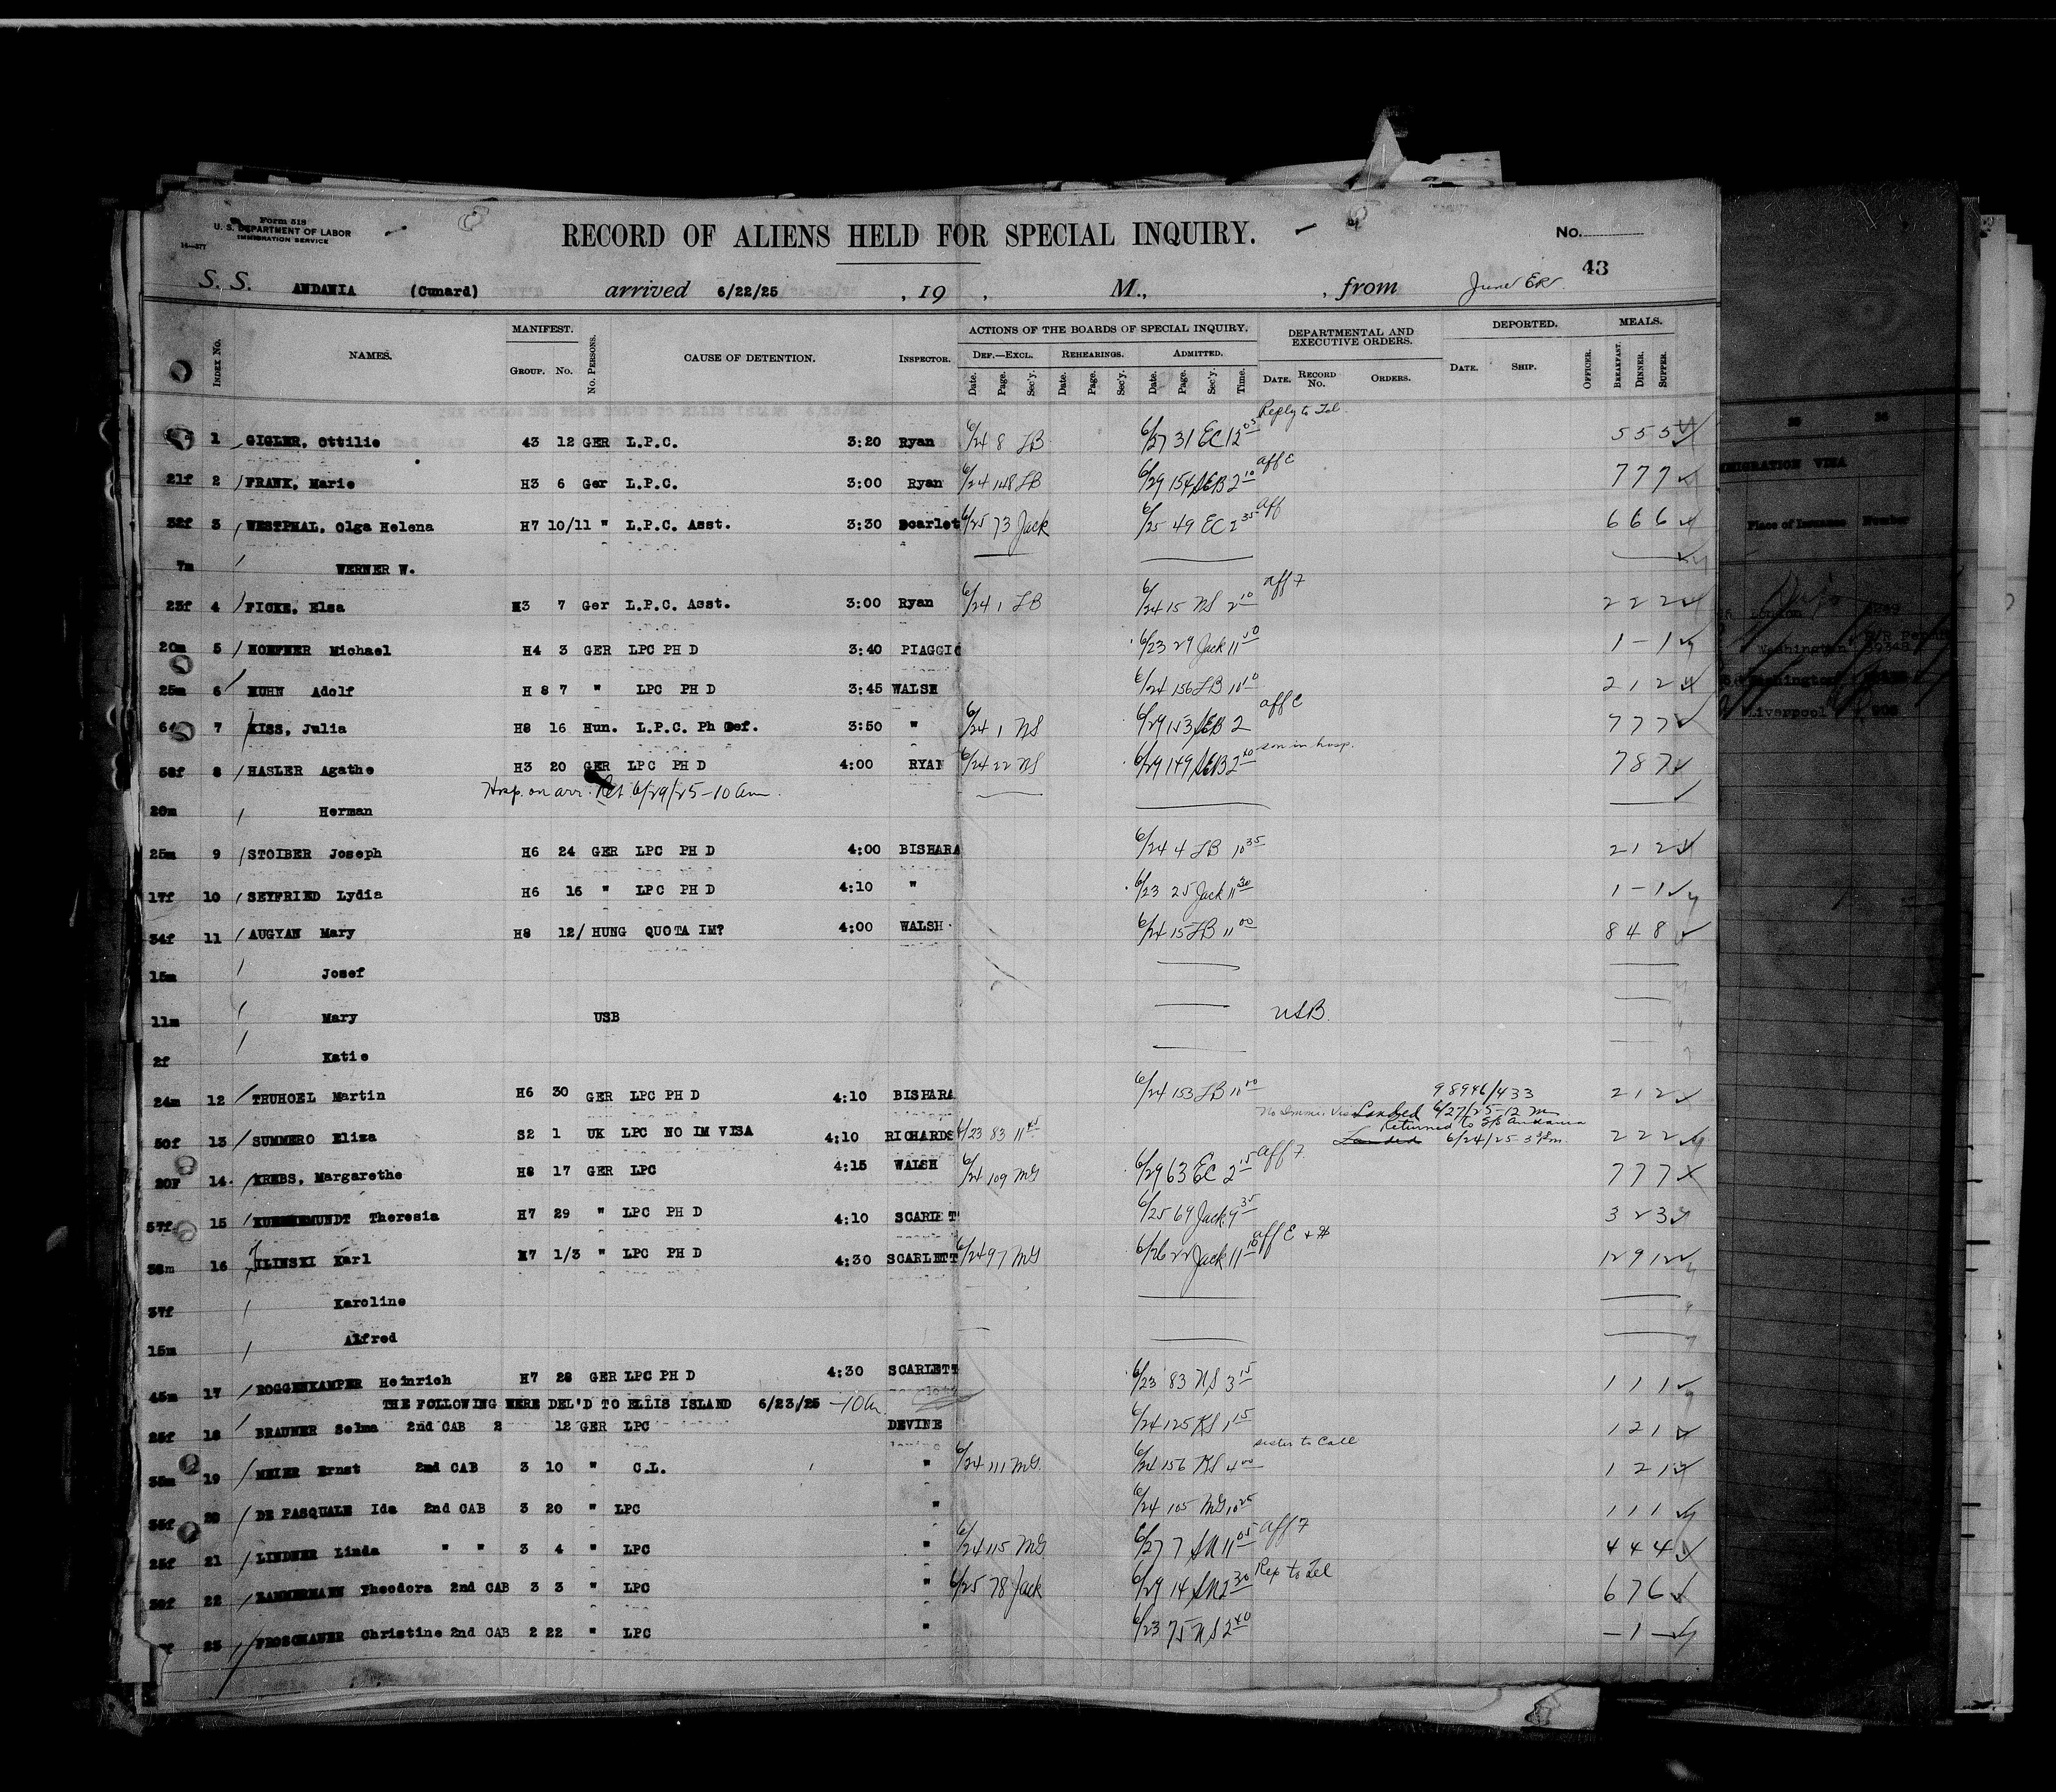 Form 518
U. S. DEPARTMENT OF LABOR
IMMIGRATION SERVICE
14—577
RECORD OF ALIENS HELD FOR SPECIAL INQUIRY.
No.
43
S. S. ANDANIA (Cunard) arrived 6/22/25 , 19 , M., , from
INDEX No. NAMES. MANIFEST. GROUP. No. No. PERSONS. CAUSE OF DETENTION. INSPECTOR. ACTIONS OF THE BOARDS OF SPECIAL INQUIRY. DEPARTMENTAL AND EXECUTIVE ORDERS. DEPORTED. OFFICER. MEALS.
DEF.—EXCL. REHEARINGS. ADMITTED.
Date. Page. Sec'y. Date. Page. Sec'y. Date. Page. Sec'y. Time. DATE. RECORD No. ORDERS. DATE. SHIP. BREAKFAST. DINNER. SUPPER.
Reply to Tel.
1 GIGLER, Ottilie 43 12 GER L.P.C. 3:20 Ryan 6/24 8 LB 6/27 31 EC 12 05 5 5 5
aff C
21f 2 FRANK, Marie H3 6 Ger L.P.C. 3:00 Ryan 6/24 148 LB 6/29 154 SEB 2 10 7 7 7
32f 3 WESTPHAL, Olga Helena H7 10/11 " L.P.C. Asst. 3:30 Scarlet 6/25 73 Jack 6/25 49 EC 2 35 aff 6 6 6
7m WERNER W.
aff 7
23f 4 FICKE, Elsa H3 7 Ger L.P.C. Asst. 3:00 Ryan 6/24 1 LB 6/24 15 NS 2 10 2 2 2
20m 5 HOEFNER Michael H4 3 GER LPC PH D 3:40 PIAGGIO 6/23 29 Jack 11 50 1 - 1
25m 6 KUHN Adolf H 8 7 " LPC PH D 3:45 WALSH 6/24 156 LB 10 10 2 1 2
aff C
7 KISS, Julia H8 16 Hun. L.P.C. Ph Def. 3:50 " 6/24 1 NS 6/29 153 SEB 2 7 7 7
58f 8 HASLER Agathe H3 20 GER LPC PH D 4:00 RYAN 6/24 22 NS 6/29 149 SEB 2 40 son in hosp. 7 8 7
Hosp. on arr. Ret. 6/29/25-10 am.
20m Herman
25m 9 STOIBER Joseph H6 24 GER LPC PH D 4:00 BISHARA 6/24 4 LB 10 35 2 1 2
17f 10 SEYFRIED Lydia H6 16 " LPC PH D 4:10 " 6/23 25 Jack 11 30 1 - 1
34f 11 AUGYAN Mary H8 12/ HUNG QUOTA IM? 4:00 WALSH 6/24 15 LB 11 00 8 4 8
15m Josef
11m Mary USB USB.
2f Katie
24m 12 TRUHOEL Martin H6 30 GER LPC PH D 4:10 BISHARA 6/24 153 LB 98946/433 2 1 2
No Immi. Visa Landed 6/27/25-12 m
Returned to S/S Andania
50f 13 SUMMERO Eliza S2 1 UK LPC NO IM VISA 4:10 RICHARDS 6/23 83 11 45 Landed 6/24/25 2 2 2
20F 14 KREBS, Margarethe H8 17 GER LPC 4:15 WALSH 6/24 109 MG 6/29 63 EC 2 15 aff 7. 7 7 7
57f 15 Theresia H7 29 " LPC PH D 4:10 SCARLET 6/25 69 Jack 9 35 3 2 3
38m 16 ILINSKI Karl H7 1/3 " LPC PH D 4:30 SCARLETT 6/24 97 MG 6/26 22 Jack 11 10 aff E + # 12 9 12
37f Karoline
15m Alfred
45m 17 ROGGENKAMPER Heinrich H7 28 GER LPC PH D 4:30 SCARLETT 6/23 83 NS 3 15 1 1 1
THE FOLLOWING WERE DEL'D TO ELLIS ISLAND 6/23/25 -10 am
25f 18 BRAUNER Selma 2nd CAB 2 12 GER LPC DEVINE 6/24 125 KS 1 15 1 2 1
sister to Call
35m 19 MEIER Ernst 2nd CAB 3 10 " C.L. " 6/24 111 MG. 6/24 156 KS 4 00 1 2 1
35f 20 DE PASQUALE Ida 2nd CAB 3 20 " LPC " 6/24 105 MG 10 25 1 1 1
25f 21 LINDNER Linda " " 3 4 " LPC " 6/24 115 MG 6/27 7 SN 11 05 aff 7 4 4 4
22 Theodora 2nd CAB 3 3 " LPC " 6/25 78 Jack 6/29 14 SN 2 30 Rep to Tel 6 7 6
23 FROSCHAUER Christine 2nd CAB 2 22 " LPC " 6/23 75 NS 2 40 - 1 -
IMMIGRATION VISA
Place of Issuance Number
London
Washington
Washington
Liverpool